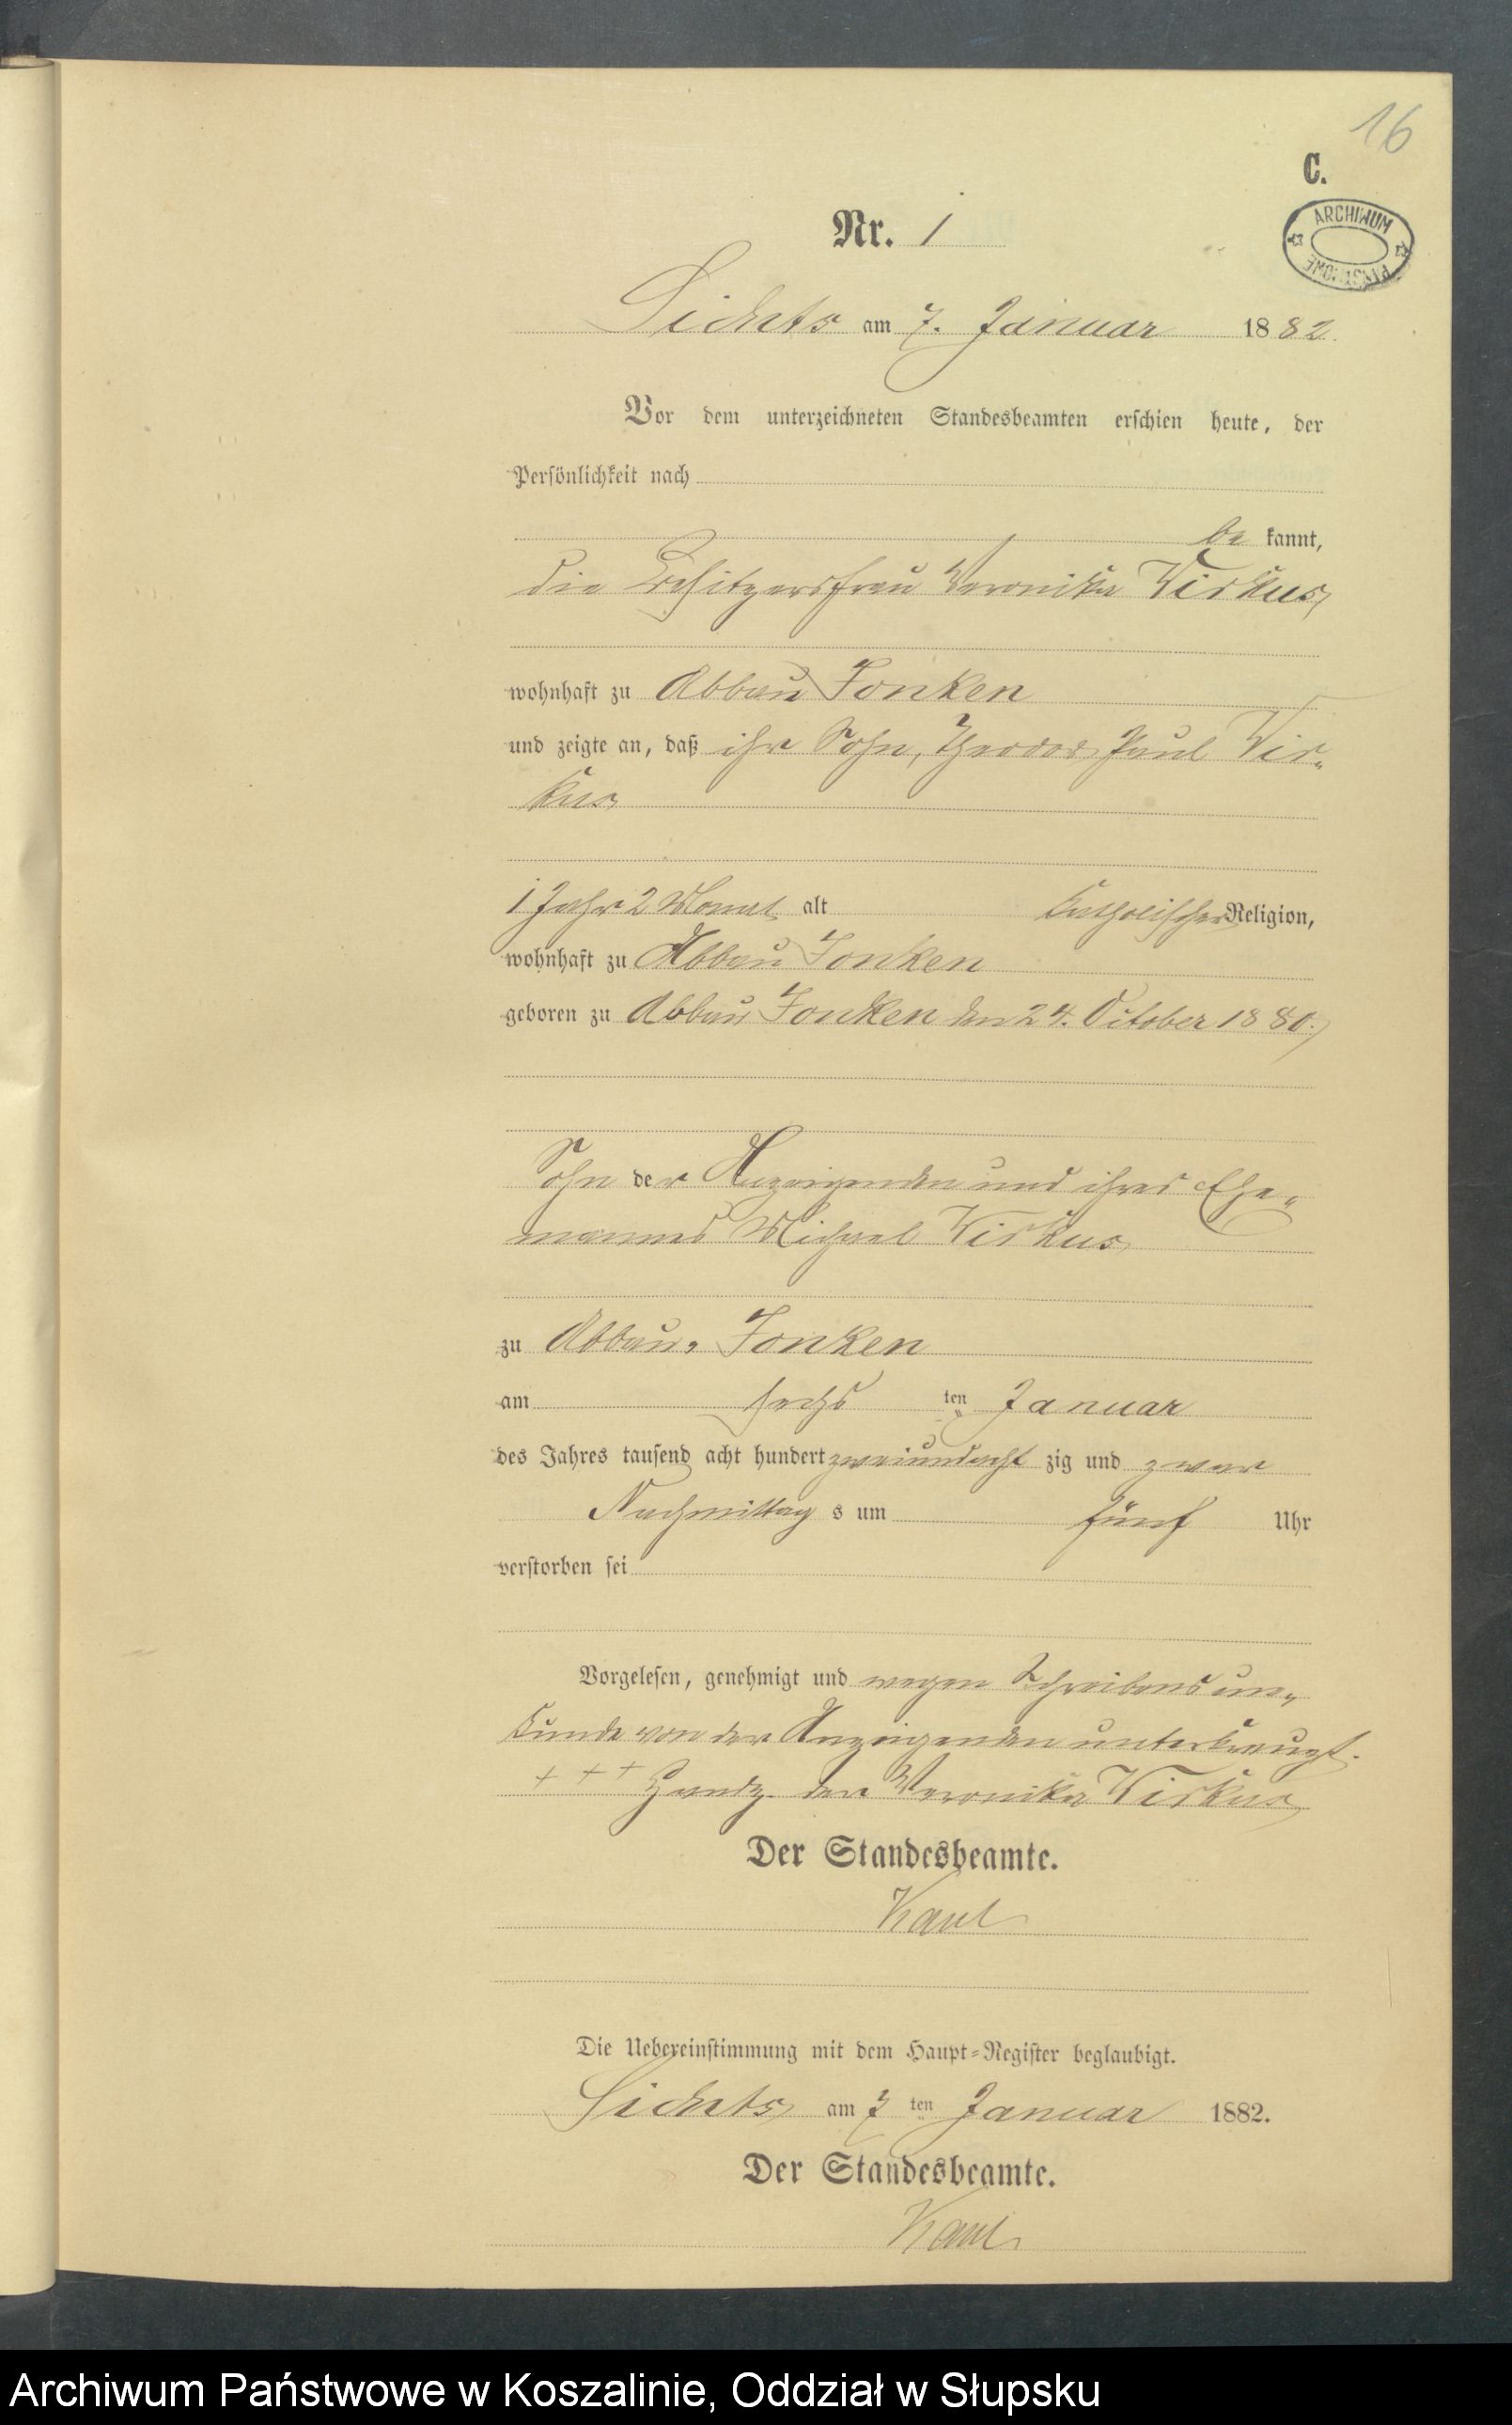 16
C.
ARCHIWUM PAŃSTWOWE
Nr. 1
Lichts am 7. Januar 1882.
Vor dem unterzeichneten Standesbeamten erschien heute, der
Persönlichkeit nach
be kannt,
die Besitzersfrau Veronika Wirkus,
wohnhaft zu Abbau Jonken
und zeigte an, daß ihr Sohn, Theodor Paul Wir-
kus
1 Jahr 2 Monat alt katholischer Religion,
wohnhaft zu Abbau Jonken
geboren zu Abbau Jonken den 24. October 1880,
Sohn der Anzeigenden und ihres Ehe-
mannes Michael Wirkus
zu Abbau Jonken
am sechs ten Januar
des Jahres tausend acht hundert zweiundacht zig und zwar
Nachmittag s um fünf Uhr
verstorben sei
Vorgelesen, genehmigt und wegen Schreibensun-
kunde von der Anzeigenden unterkreuzt.
+++ Handz. der Veronika Wirkus
Der Standesbeamte.
Kaul
Die Uebereinstimmung mit dem Haupt-Register beglaubigt.
am 7 ten Januar 1882.
Der Standesbeamte.
Kaul
Archiwum Państwowe w Koszalinie, Oddział w Słupsku